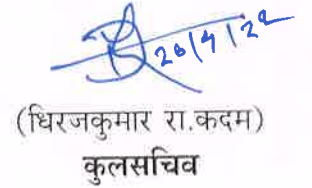 26/4/22
(धिरजकुमार रा.कदम)
कुलसचिव